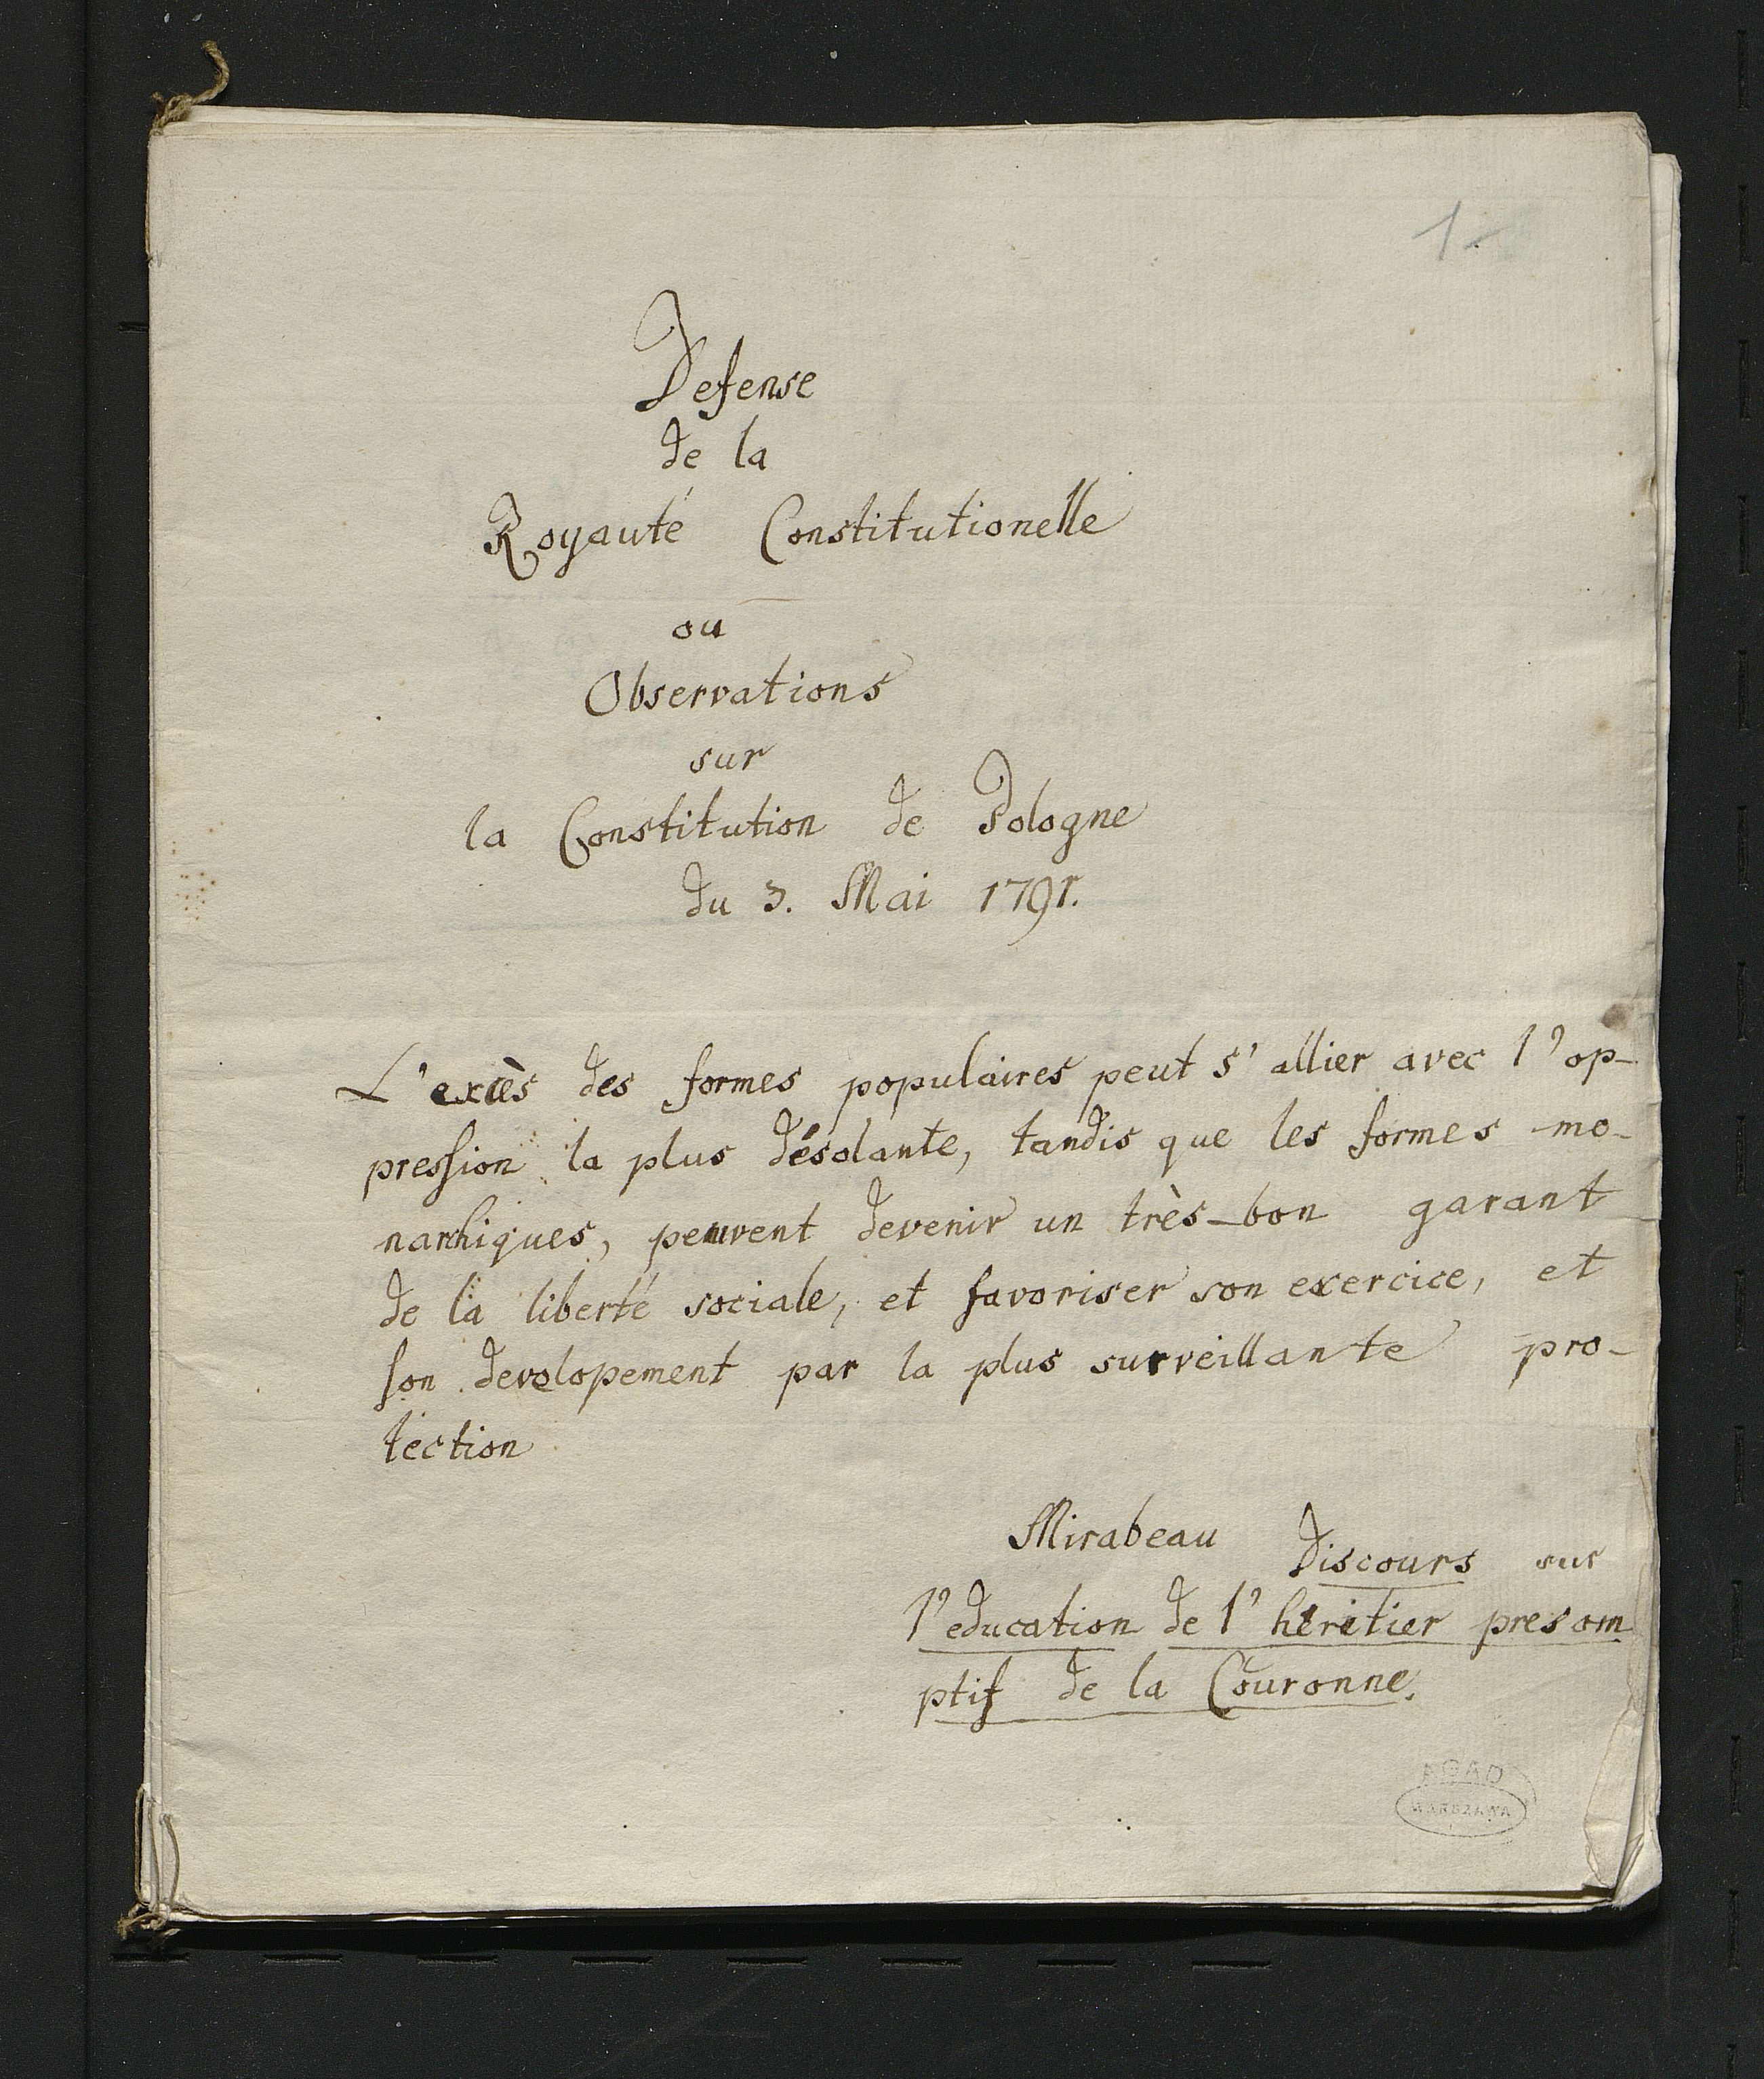 1.
Defense
de la
Royauté Constitutionelle
ou
Observations
sur
la Constitution de Pologne
du 3. Mai 1791.
L'excès des formes populaires peut s'allier avec l'op-
preſsion la plus désolante, tandis que les formes mo-
narchiques, peuvent devenir un très-bon garant
de la liberté sociale, et favoriser son exercice, et
ſon developement par la plus surveillante pro-
tection
Mirabeau Discours sur
l'education de l'heritier presom
ptif de la Couronne.
AGAD
WARSZAWA